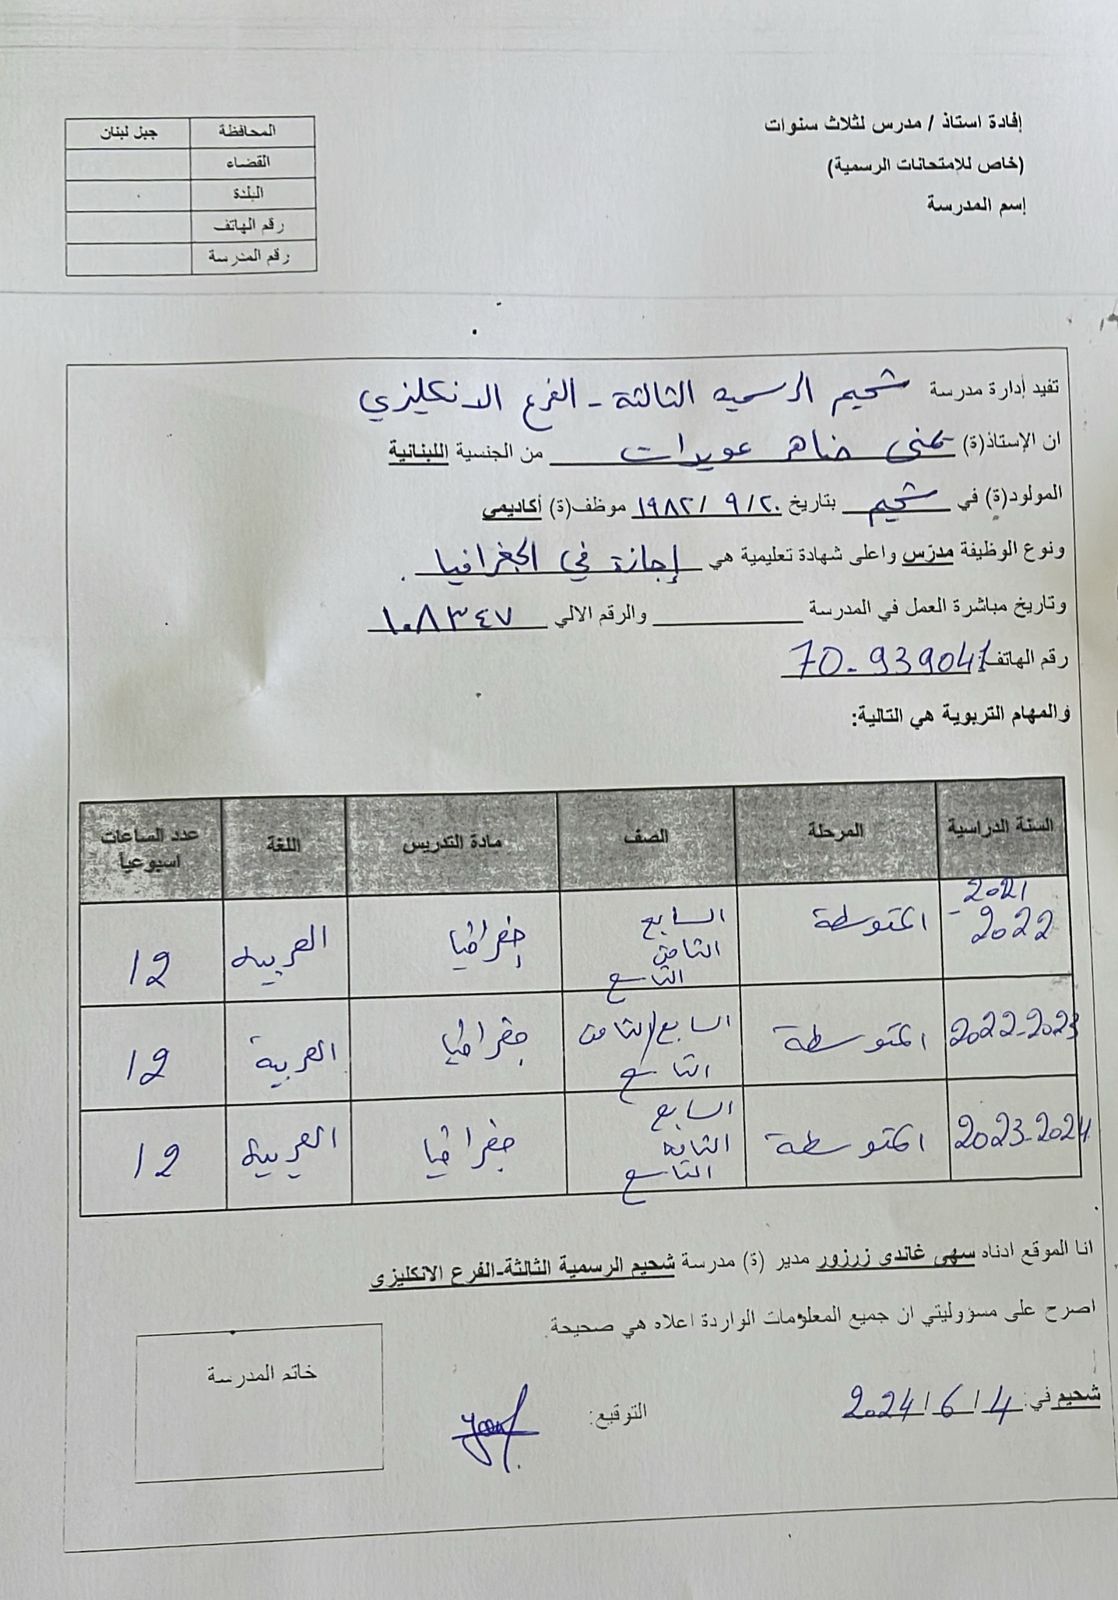 إفادة استاذ / مدرس لثلاث سنوات
(خاص للامتحانات الرسمية)
إسم المدرسة
المحافظة جبل لبنان
القضاء
البلدة
رقم الهاتف
رقم المدرسة
تفيد إدارة مدرسة شحيم الرسمية الثالثة - الفرع الانكليزي
ان الإستاذ(ة) يمنى ضاهر عويدات من الجنسية اللبنانية
المولود(ة) في شحيم بتاريخ ٢٠/٩/١٩٨٢ موظف(ة) أكاديمي
ونوع الوظيفة مدرّس واعلى شهادة تعليمية هي إجازة في الجغرافيا.
وتاريخ مباشرة العمل في المدرسة والرقم الالي ١٠٨٣٤٧
رقم الهاتف: 70-939041
والمهام التربوية هي التالية:
السنة الدراسية المرحلة الصف مادة التدريس اللغة عدد الساعات اسبوعيا
2021-2022 المتوسطة السابع الثامن التاسع جغرافيا العربية 12
2022-2023 المتوسطة السابع/الثامن التاسع جغرافيا العربية 12
2023-2024 المتوسطة السابع الثامن التاسع جغرافيا العربية 12
انا الموقع ادناه سهى غاندي زرزور مدير (ة) مدرسة شحيم الرسمية الثالثة-الفرع الانكليزي
اصرح على مسؤوليتي ان جميع المعلومات الواردة اعلاه هي صحيحة.
شحيم في: 4/6/2024
التوقيع:
خاتم المدرسة